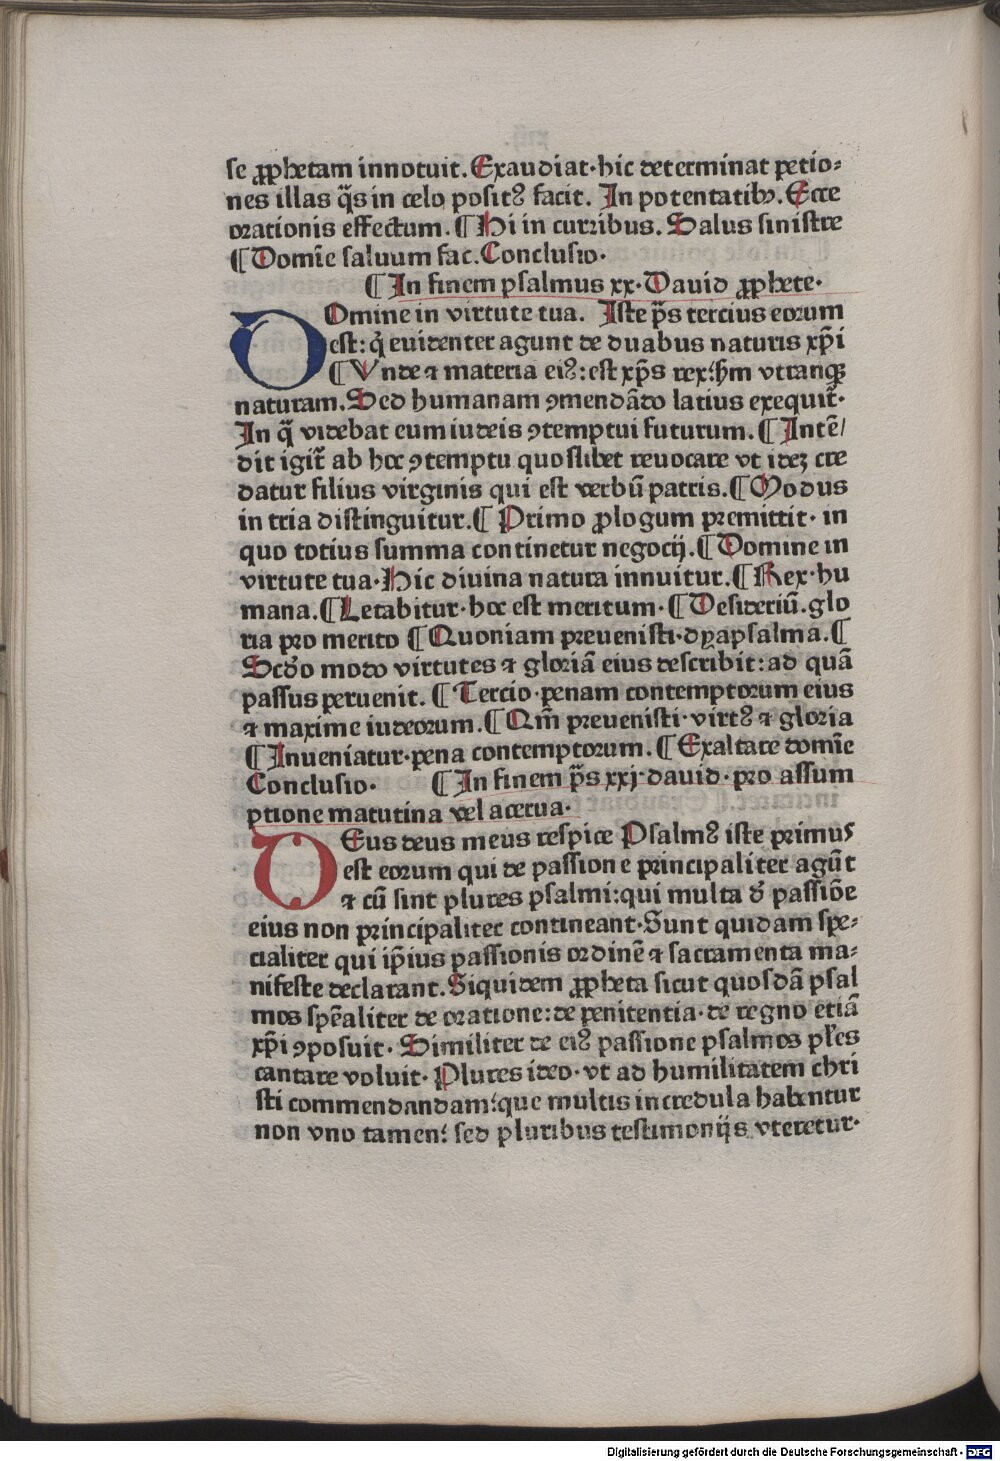 se ꝓphetam innotuit. Exaudiat·hic determinat petio⸗
nes illas q̄s in celo positꝰ facit. In potentatibꝫ. Ecce
orationis effectum. ¶ Hi in curribus. Salus sinistre
¶ Domīe saluum fac. Conclusio·
¶ In finem psalmus xx· Dauid ꝓphete·
DOmine in virtute tua. Iste p̄s tercius eorum
est: q̇ euidenter agunt de duabus naturis xp̄i
¶ Vnde ⁊ materia eiꝰ: est xp̄s rex: ẜm vtranqꝫ
naturam. Sed humanam ꝯmendādo latius exequit᷑·
In q̄ videbat eum iudeis ꝯtemptui futurum. ¶ Intē/
dit igit᷑ ab hoc ꝯtemptu quoslibet reuocare vt idez cre
datur filius virginis qui est verbū patris. ¶ Modus
in tria distinguitur. ¶ Primo ꝓlogum premittit· in
quo totius summa continetur negocij. ¶ Domine in
virtute tua· Hic diuina natura innuitur. ¶ Rex· hu
mana. ¶ Letabitur· hoc est meritum· ¶ Desideriū. glo
ria pro merito ¶ Quoniam preuenisti· dyapsalma. ¶
Scd̓o modo virtutes ⁊ gloriā eius describit: ad quā
passus peruenit. ¶ Tercio· penam contemptorum eius
⁊ maxime iudeorum. ¶ Qm̄ preuenisti· virtꝰ ⁊ gloria
¶ Inueniatur· pena contemptorum. ¶ Exaltare domīe
Conclusio· ¶ In finem p̄s xxj· dauid· pro assum
ptione matutina vel acerua·
DEus deus meus respice Psalmꝰ iste primus
est eorum qui de passione principaliter agūt
⁊ cū sint plures psalmi: qui multa d̓ passiōe
eius non principaliter contineant· Sunt quidam spe⸗
cialiter qui ip̄ius passionis ordinē ⁊ sacramenta ma⸗
nifeste declarant. Siquidem ꝓpheta sicut quosdā psal
mos spēaliter de oratione: de penitentia· de regno etiā
xp̄i ꝯposuit· Similiter de eiꝰ passione psalmos pl̄es
cantare voluit· Plures ideo· vt ad humilitatem chri
sti commendandam: que multis incredula habentur
non vno tamen: sed pluribus testimonijs vteretur·
Digitalisierung gefördert durch die Deutsche Forschungsgemeinschaft · DFG